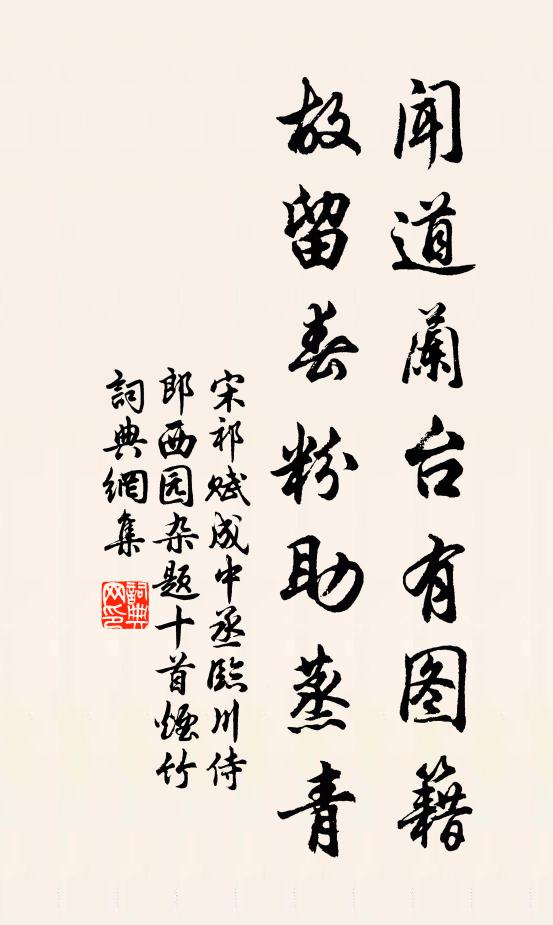 聞道蘭台有图籍
故留春粉助蒸青
宋祁赋成中丞臨川侍
郎西园杂题十首烟竹
詞典網集
詞典网印